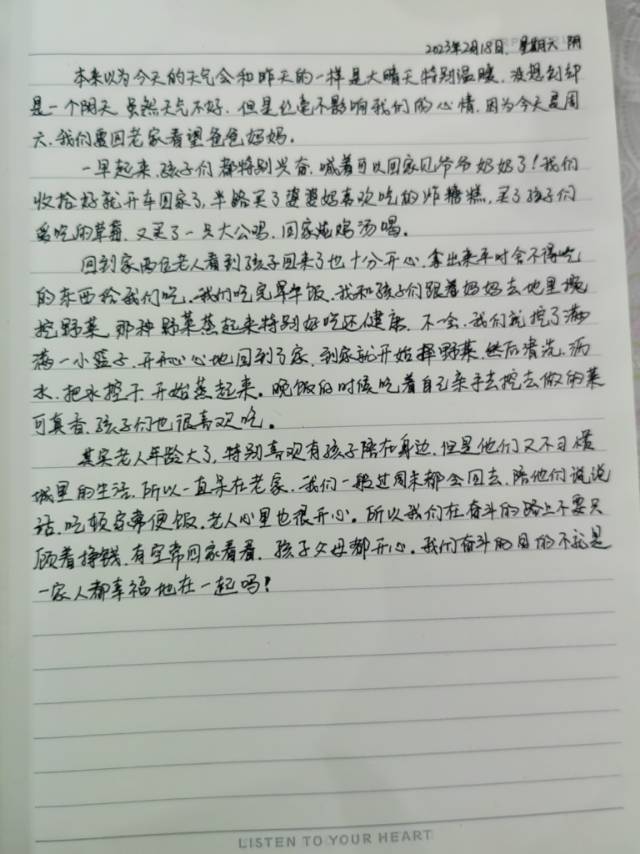 2023年2月18日. 星期六 阴
本来以为今天的天气会和昨天的一样是大晴天特别温暖, 没想到却
是一个阴天 虽然天气不好. 但是丝毫不影响我们的心情. 因为今天是周
六. 我们要回老家看望爸爸妈妈.
一早起来. 孩子们都特别兴奋. 喊着可以回家见爷爷奶奶了! 我们
收拾好就开车回家了, 半路买了婆婆妈喜欢吃的炸糖糕, 买了孩子们
爱吃的草莓. 又买了一只大公鸡. 回家炖鸡汤喝.
回到家两位老人看到孩子回来了也十分开心. 拿出来平时舍不得吃
的东西给我们吃. 我们吃完早午饭. 我和孩子们跟着妈妈去地里挖
挖野菜 那种野菜蒸起来特别好吃还健康. 不一会. 我们就挖了满
满一小篮子. 开开心心地回到了家. 到家就开始择野菜. 然后清洗. 沥
水. 把水控干. 开始蒸起来. 晚饭的时候吃着自己亲手去挖去做的菜
可真香. 孩子们也很喜欢吃.
其实老人年龄大了, 特别喜欢有孩子陪在身边. 但是他们又不习惯
城里的生活. 所以一直呆在老家. 我们一般过周末都会回去. 陪他们说说
话. 吃顿家常便饭. 老人心里也很开心. 所以我们在奋斗的路上不要只
顾着挣钱. 有空常回家看看. 孩子父母都开心. 我们奋斗的目的不就是
一家人都幸福地在一起吗!
LISTEN TO YOUR HEART